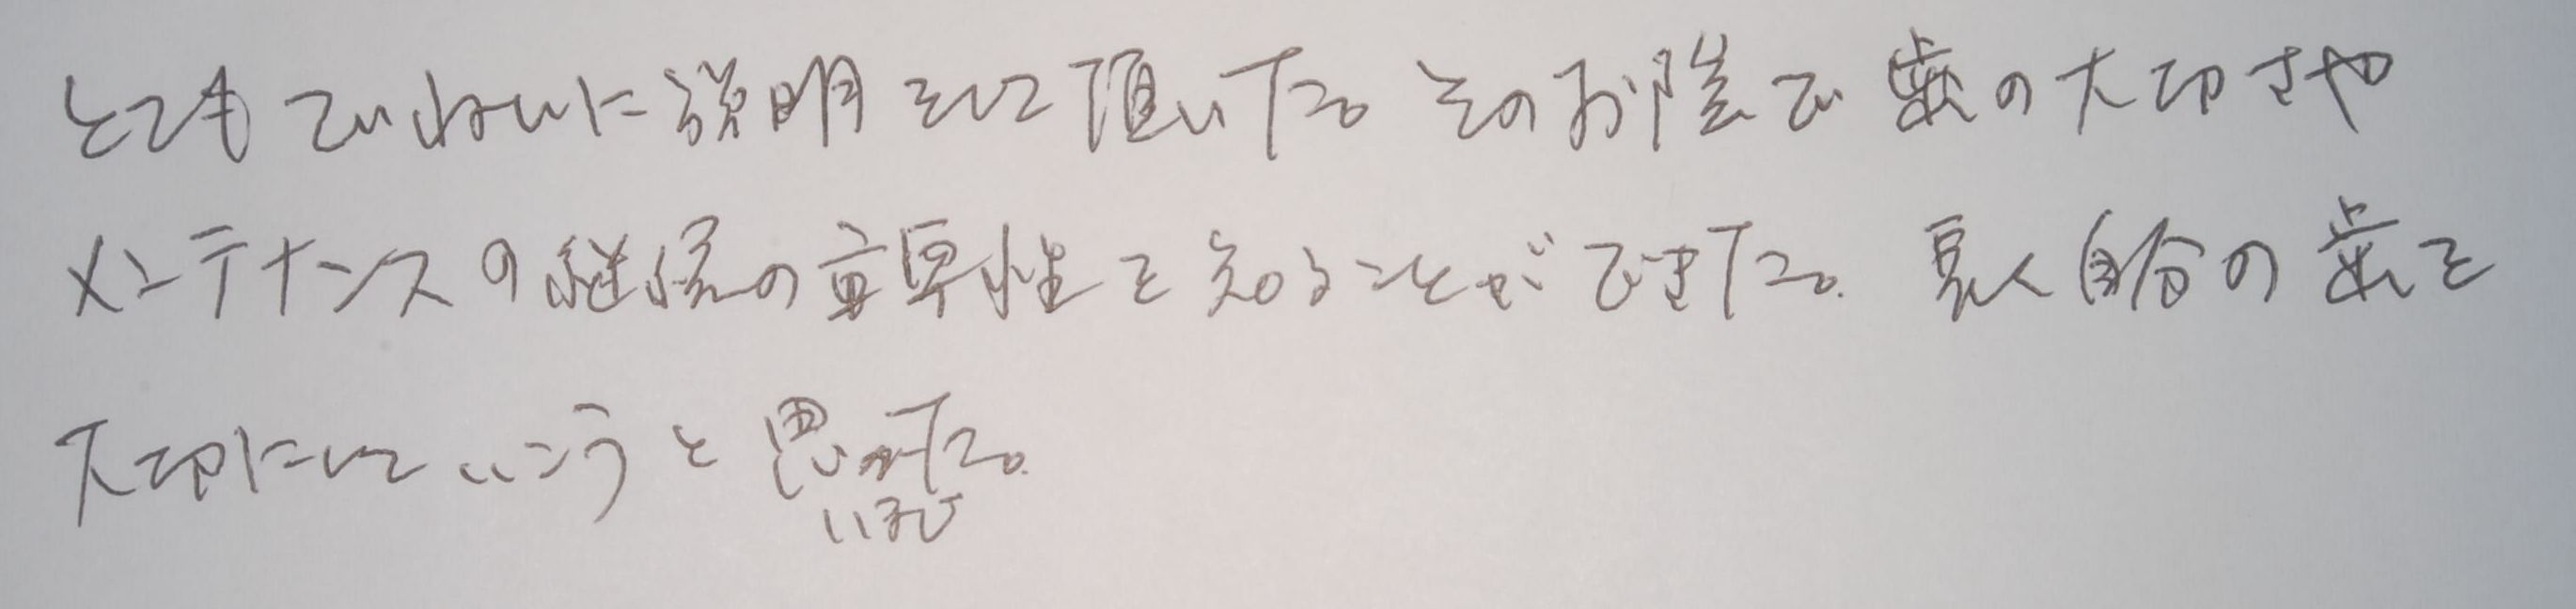 とてもていねいに説明をして頂いた。そのお陰で歯の大切さや
メンテナンスの継続の重要性を知ることができた。長く自分の歯を
大切にしていこうと思った。
います